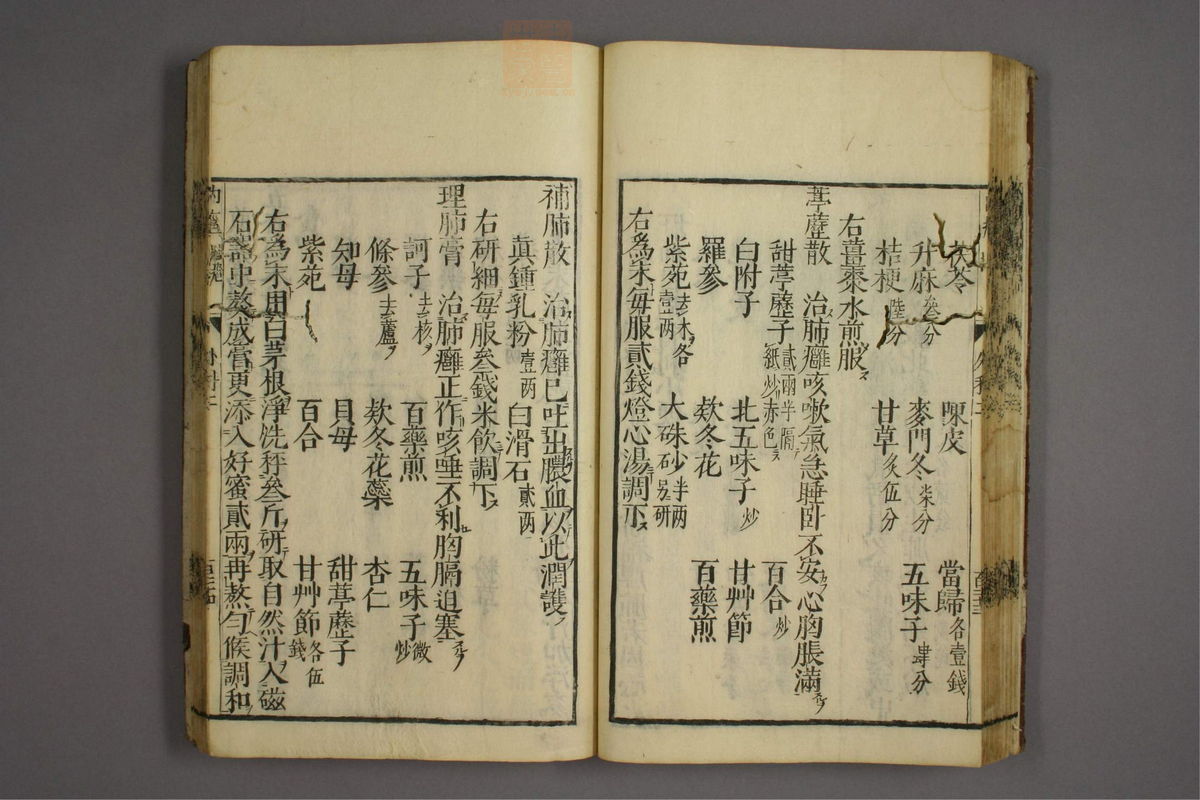 茯苓 陳皮 當歸各壹錢
升麻叄分 麥門冬柒分 五味子肆分
桔梗陸分 甘草炙伍分
右薑棗水煎服
葶藶散 治肺癰咳嗽氣急睡卧不安心胸脹滿
甜葶藶子貳兩半隔紙炒赤色 百合炒
白附子 北五味子炒 甘艸節
羅參 欵冬花 百藥煎
紫菀去木各壹两 大硃砂半两另研
右爲末每服貳錢燈心湯調下
補肺散 治肺癰已吐出膿血以此潤護
真鍾乳粉壹两 白滑石貳两
右研細每服叄錢米飲調下
理肺膏 治肺癰正作咳唾不利胸膈迫塞
訶子去核 百藥煎 五味子微炒
條參去蘆 欵冬花蘂 杏仁
知母 貝母 甜葶藶子
紫菀 百合 甘艸節各伍錢
右爲末用白茅根淨洗秤叄斤研取自然汁入磁
石器中熬成膏更添入好蜜貳兩再熬勻候調和